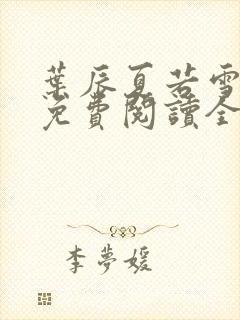 葉辰夏若雪
免費閱讀全
李夢媛